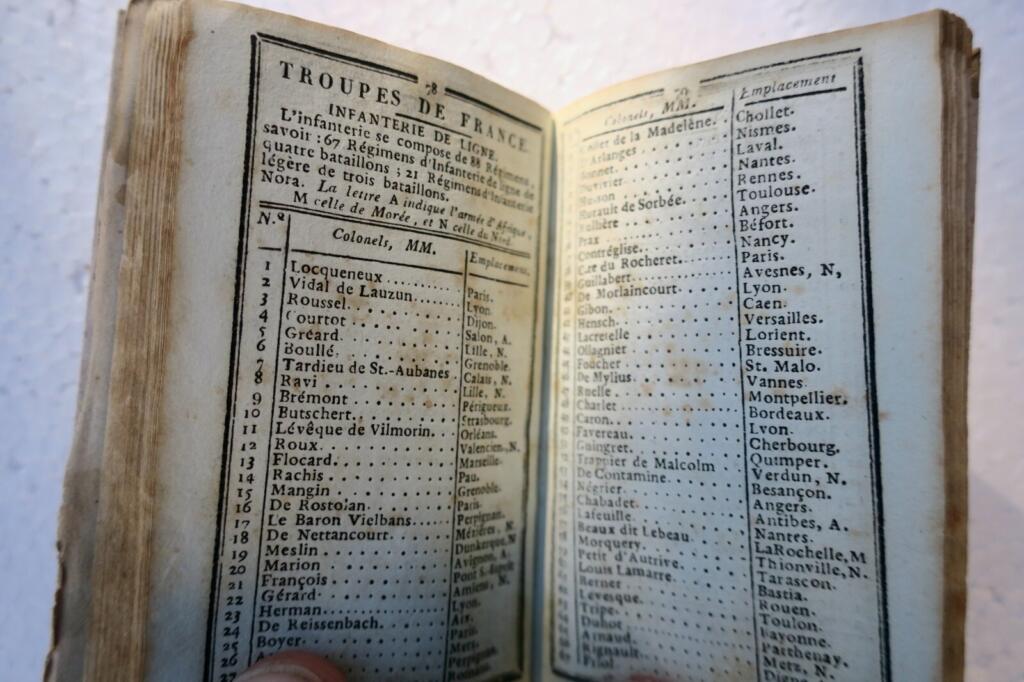 78
TROUPES DE FRANCE.
INFANTERIE DE LIGNE.
L'infanterie se compose de 88 Régimens,
savoir : 67 Régimens d'Infanterie de ligne de
quatre bataillons ; 21 Régimens d'Infanterie
légère de trois bataillons.
Nota. La lettre A indique l'armée d'Afrique,
M celle de Morée, et N celle du Nord.
N.º Colonels, MM. Emplacement.
1 Locqueneux Paris.
2 Vidal de Lauzun Lyon.
3 Roussel Dijon.
4 Courtot Salon, A.
5 Gréard Lille, N.
6 Boullé Grenoble.
7 Tardieu de St.-Aubanes Calais, N.
8 Ravi Lille, N.
9 Brémont Périgueux.
10 Butschert Strasbourg.
11 Lévêque de Vilmorin Orléans.
12 Roux Valencien, N.
13 Flocard Marseille.
14 Rachis Pau.
15 Mangin Grenoble.
16 De Rostolan Paris.
17 Le Baron Vielbans Perpignan.
18 De Nettancourt Mézières, N
19 Meslin Dunkerque, N
20 Marion Avignon, A.
21 François
22 Gérard Amiens, N.
23 Herman Lyon.
24 De Reissenbach. Aix.
25 Boyer Paris.
26 Metz.
27 Perpignan.
Colonels, MM. Emplacement
de la Madelène. Chollet.
Arlanges Nismes.
Laval.
Duvivier Nantes.
Rennes.
Hurault de Sorbée. Toulouse.
Angers.
Prax Béfort.
Contréglise. Nancy.
du Rocheret. Paris.
Guillabert. Avesnes, N,
De Morlaincourt Lyon.
Gibon. Caen.
Hensch. Versailles.
Lacretelle Lorient.
Ollagnier Bressuire.
Foucher St. Malo.
De Mylius. Vannes
Ruelle. Montpellier.
Charlet Bordeaux.
Caron. Lyon.
Favereau. Cherbourg.
Guingret. Quimper.
Trappier de Malcolm Verdun, N.
De Contamine. Besançon.
Négrier. Angers.
Chabadet Antibes, A.
Lafeuille. Nantes.
Beaux dit Lebeau LaRochelle, M
Morquery. Thionville, N.
Petit d'Autrive. Tarascon.
Louis Lamarre. Bastia.
Berner Rouen.
Levesque. Toulon.
Tripe. Bayonne.
Duhot Parthenay.
Arnaud. Metz, N.
Rignault